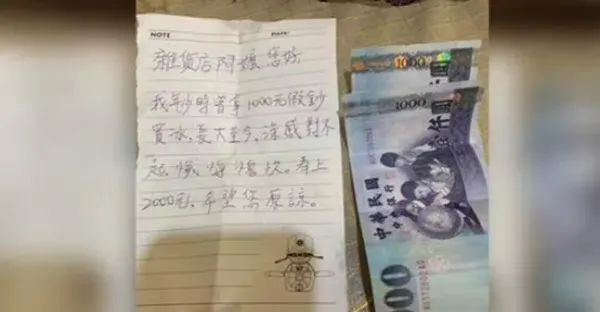 NOTE DATE:
雜貨店阿嬤您好
我年少時曾拿1000元假鈔
買冰,長大至今,深感對不
起,懺悔悔改。奉上
2000元,希望您原諒。
1000
1000
仟圓
中華民國